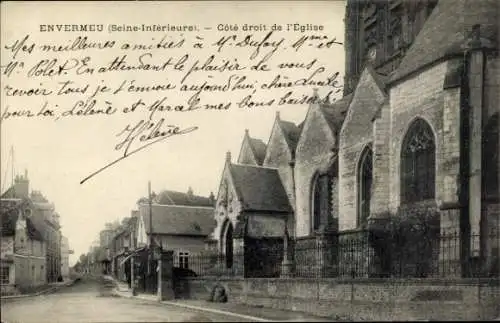 ENVERMEU (Seine-Inférieure). - Côté droit de l'Église
Mes meilleures amitiés à Mr Dufay, Mme et
Mr Polet. En attendant le plaisir de vous
revoir tous, je vous envoie aujourd'hui, chère
pour Hélène et Marcel mes bons baisers
Hélène